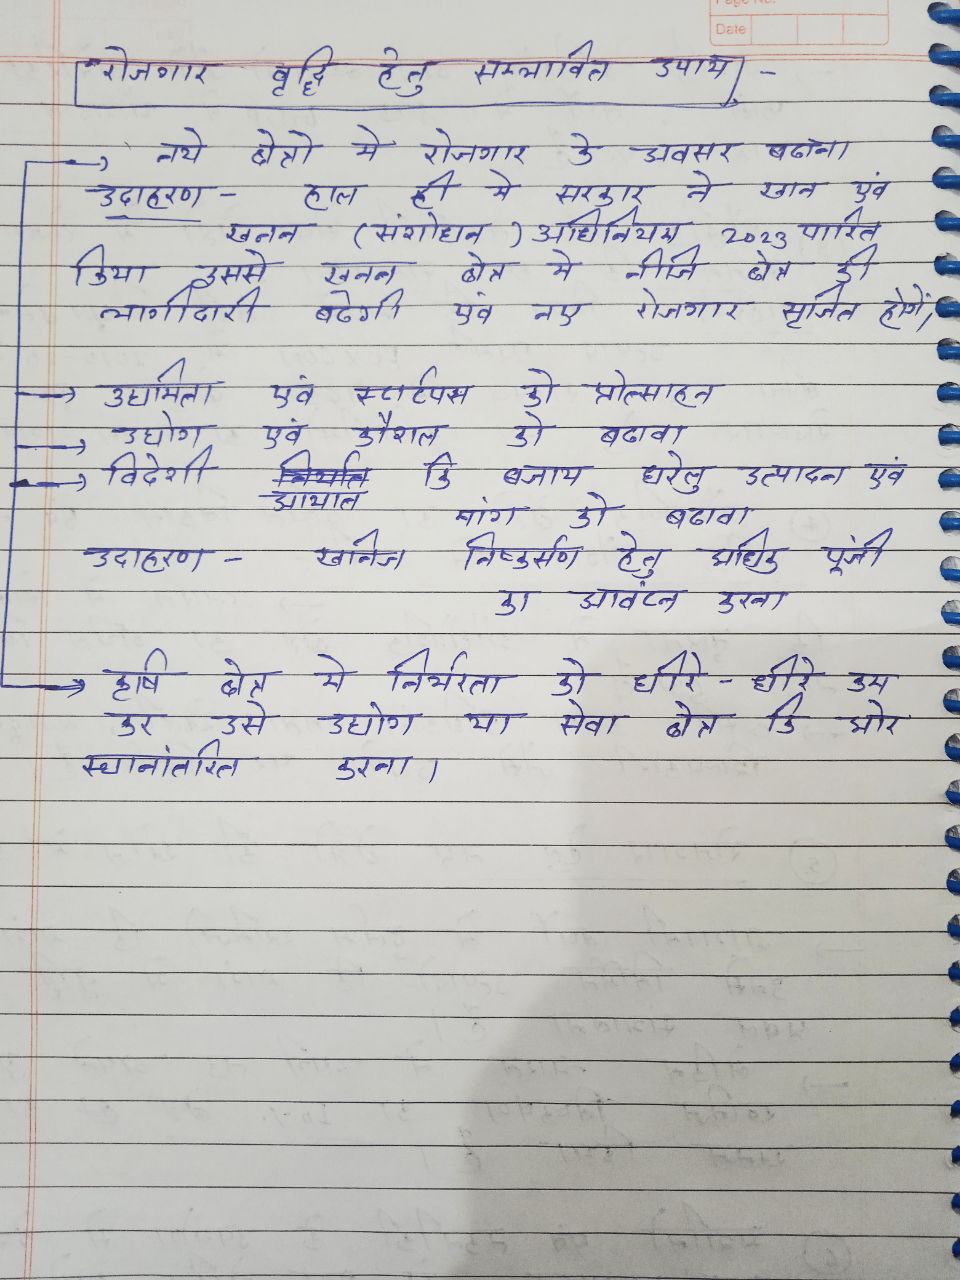 Page No.
Date
रोजगार वृद्धि हेतु सम्भावित उपाय -
→ नये क्षेत्रो मे रोजगार के अवसर बढाना
उदाहरण - हाल ही मे सरकार ने खान एवं
खनन (संशोधन) अधिनियम 2023 पारित
किया इससे खनन क्षेत्र मे नीजि क्षेत्र की
भागीदारी बढेगी एवं नए रोजगार सृजित होगें,
→ उद्यमिता एवं स्टार्टपस को प्रोत्साहन
→ उद्योग एवं कौशल को बढावा
→ विदेशी निर्यात कि बजाय घरेलु उत्पादन एवं
आयात मांग को बढावा
उदाहरण - खनिज निष्कर्सण हेतु अधिक पूंजी
का आवंटन करना
→ कृषि क्षेत्र मे निर्भरता को धीरे - धीरे कम
कर उसे उद्योग या सेवा क्षेत्र कि ओर
स्थानांतरित करना।